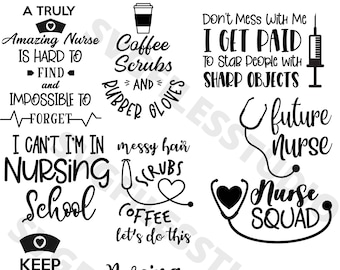 A TRULY
Amazing Nurse
IS HARD TO
FIND
and
IMPOSSIBLE TO
FORGET
Coffee
Scrubs
AND
RUBBER GLOVES
DON'T MESS WITH ME
I GET PAID
TO STAB PEOPLE WITH
SHARP OBJECTS
I CAN'T I'M IN
NURSING
School
messy hair
SCRUBS
COFFEE
let's do this
future
nurse
Nurse
SQUAD
KEEP